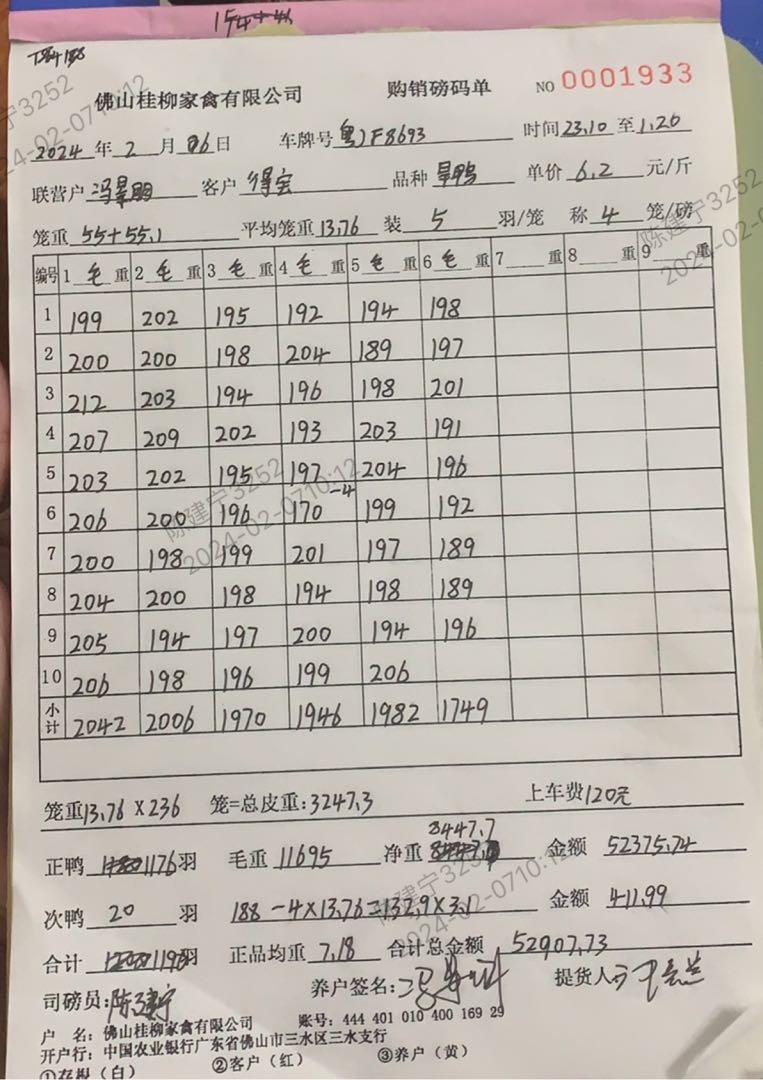 154+46
佛山桂柳家禽有限公司 购销磅码单 NO 0001933
2024年2月06日 车牌号粤JF8693 时间23.10至1.20
联营户冯景明 客户得宝 品种旱鸭 单价6.2元/斤
笼重55+55.1 平均笼重13.76装5羽/笼 称4笼/磅
编号 1毛重 2毛重 3毛重 4毛重 5毛重 6毛重 7重 8重 9重
1 199 202 195 192 194 198
2 200 200 198 204 189 197
3 212 203 194 196 198 201
4 207 209 202 193 203 191
5 203 202 195 197 204 196
6 206 200 196 170-4 199 192
7 200 198 199 201 197 189
8 204 200 198 194 198 189
9 205 194 197 200 194 196
10 206 198 196 199 206
小计 2042 2006 1970 1946 1982 1749
笼重13.76×236 笼=总皮重:3247.3 上车费120元
正鸭1176羽 毛重11695 净重8447.7 金额52375.74
次鸭20羽 188-4×13.76=132.9×3.1 金额411.99
合计1196羽 正品均重7.18 合计总金额52907.73
司磅员:陈建宁 养户签名: 提货人
户 名:佛山桂柳家禽有限公司 账号:444 401 010 400 169 29
开户行:中国农业银行广东省佛山市三水区三水支行
①存根(白) ②客户(红) ③养户(黄)
陈建宁3252
2024-02-0710:12